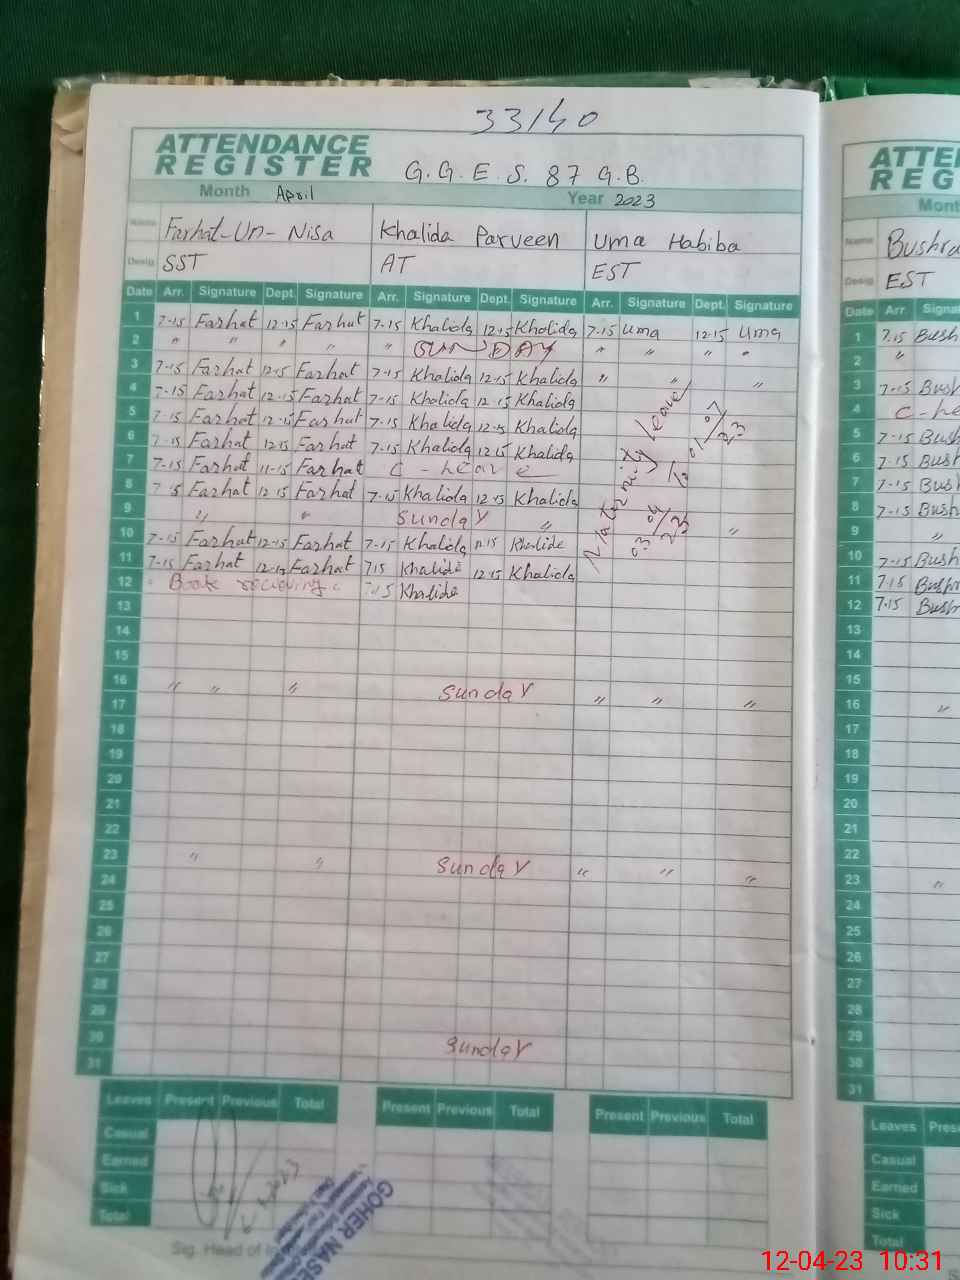 33/40
ATTENDANCE
REGISTER G.G.E.S. 87 G.B.
Month April Year 2023
Name Farhat-Un-Nisa Khalida Parveen Uma Habiba
Desig. SST AT EST
Date Arr. Signature Dept. Signature Arr. Signature Dept. Signature Arr. Signature Dept. Signature
1 7-15 Farhat 12-15 Farhat 7-15 Khalida 12-15 Khalida 7-15 Uma 12-15 Uma
2 〃 〃 〃 〃 〃 SUNDAY 〃 〃 〃 〃
3 7-15 Farhat 12-15 Farhat 7-15 Khalida 12-15 Khalida 〃 〃 〃
4 7-15 Farhat 12-15 Farhat 7-15 Khalida 12-15 Khalida
5 7-15 Farhat 12-15 Farhat 7-15 Khalida 12-15 Khalida
6 7-15 Farhat 12-15 Farhat 7-15 Khalida 12-15 Khalida
7 7-15 Farhat 11-15 Farhat C - leave
8 7-15 Farhat 12-15 Farhat 7-15 Khalida 12-15 Khalida
9 〃 〃 Sunday 〃 〃
10 7-15 Farhat 12-15 Farhat 7-15 Khalida 12-15 Khalida
11 7-15 Farhat 12-15 Farhat 7-15 Khalida 12-15 Khalida
12 Book 7-15 Khalida
Maternity leave
03/04/23 to 01/07/23
13
14
15
16 〃 〃 〃 Sunday 〃 〃 〃
17
18
19
20
21
22
23 〃 〃 Sunday 〃 〃 〃
24
25
26
27
28
29
30 Sunday
31
Leaves Present Previous Total Present Previous Total Present Previous Total
Casual
Earned
Sick
Total
Sig. Head of
GOHER
Name Bushra
Desig. EST
Date Arr.
1 7.15
2 〃
3 7-15
4
5 7-15
6 7-15
7 7-15
8 7-15
9 〃
10 7-15
11 7.15
12 7.15
13
14
15
16 〃
17
18
19
20
21
22
23 〃
24
25
26
27
28
29
30
31
Leaves
Casual
Earned
Sick
Total
12-04-23 10:31